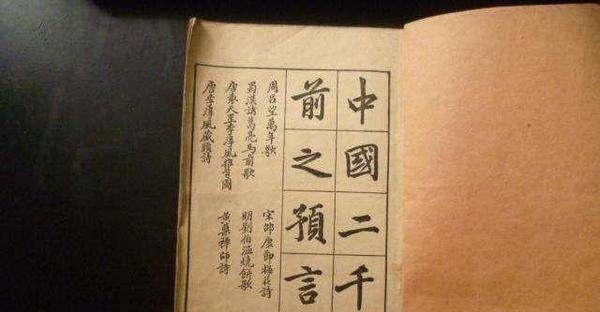 中國二千
前之預言
周呂望萬年歌
蜀漢諸葛亮馬前歌
唐袁天罡李淳風推背圖
唐李淳風藏頭詩
宋邵康節梅花詩
明劉伯溫燒餅歌
黃蘗禪師詩